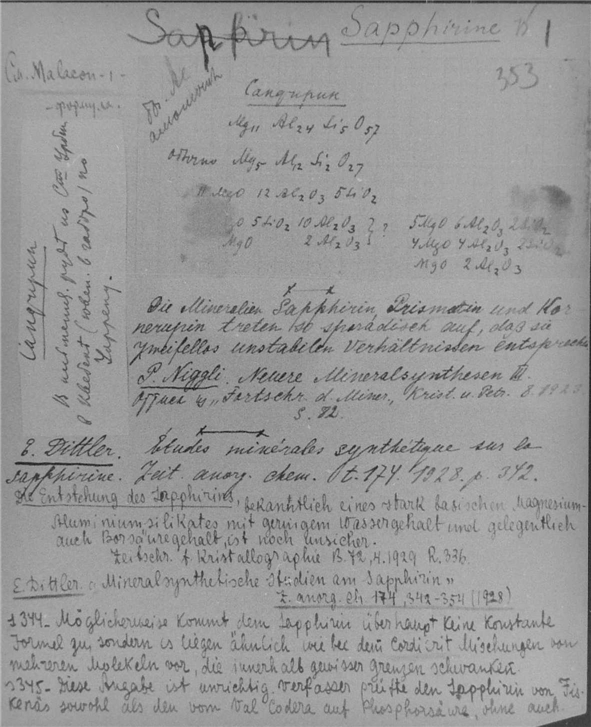 Sapphirin Sapphirine
353
См. Malacon-1-
формула.
Сапфирин
Mg11 Al24 Si5 O57
обычно Mg5 Al12 Si2 O27
11 MgO 12 Al2O3 5SiO2
5SiO2 10 Al2O3 } ?
MgO 2 Al2O3
5MgO 6Al2O3 2SiO2
4MgO 4Al2O3 2SiO2
MgO 2Al2O3
Сапфирин
Die Mineralien Sapphirin, Prismatin und Kor-
nerupin treten so sporadisch auf, daß sie
zweifellos unstabilen Verhältnissen entsprech
P. Niggli. Neuere Mineralsynthesen III.
"Fortschr. d. Miner., Krist. u. Petr. 8. 1923
S. 82.
E. Dittler. Études minérales synthétique sur la
sapphirine. Zeit. anorg. chem. t. 174. 1928. p. 342.
Die Entstehung des Sapphirins, bekanntlich eines stark basischen Magnesium-
Aluminiumsilikates mit geringem Wassergehalt und gelegentlich
auch Borsäuregehalt, ist noch unsicher.
Zeitschr. f. Kristallographie B. 72, 4. 1929 R. 336.
E. Dittler. "Mineralsynthetische Studien am Sapphirin"
Z. anorg. Ch. 174, 342-354 (1928)
s 344- Möglicherweise kommt dem Sapphirin überhaupt keine konstante
Formel zu, sondern es liegen ähnlich wie bei dem Cordierit Mischungen von
mehreren Molekeln vor, die innerhalb gewisser grenzen schwanken.
s 345- Diese Angabe ist unrichtig. Verfasser prüfte den Sapphirin von Fis-
kenäs sowohl als den vom Val Codera auf Phosphorsäure, ohne auch